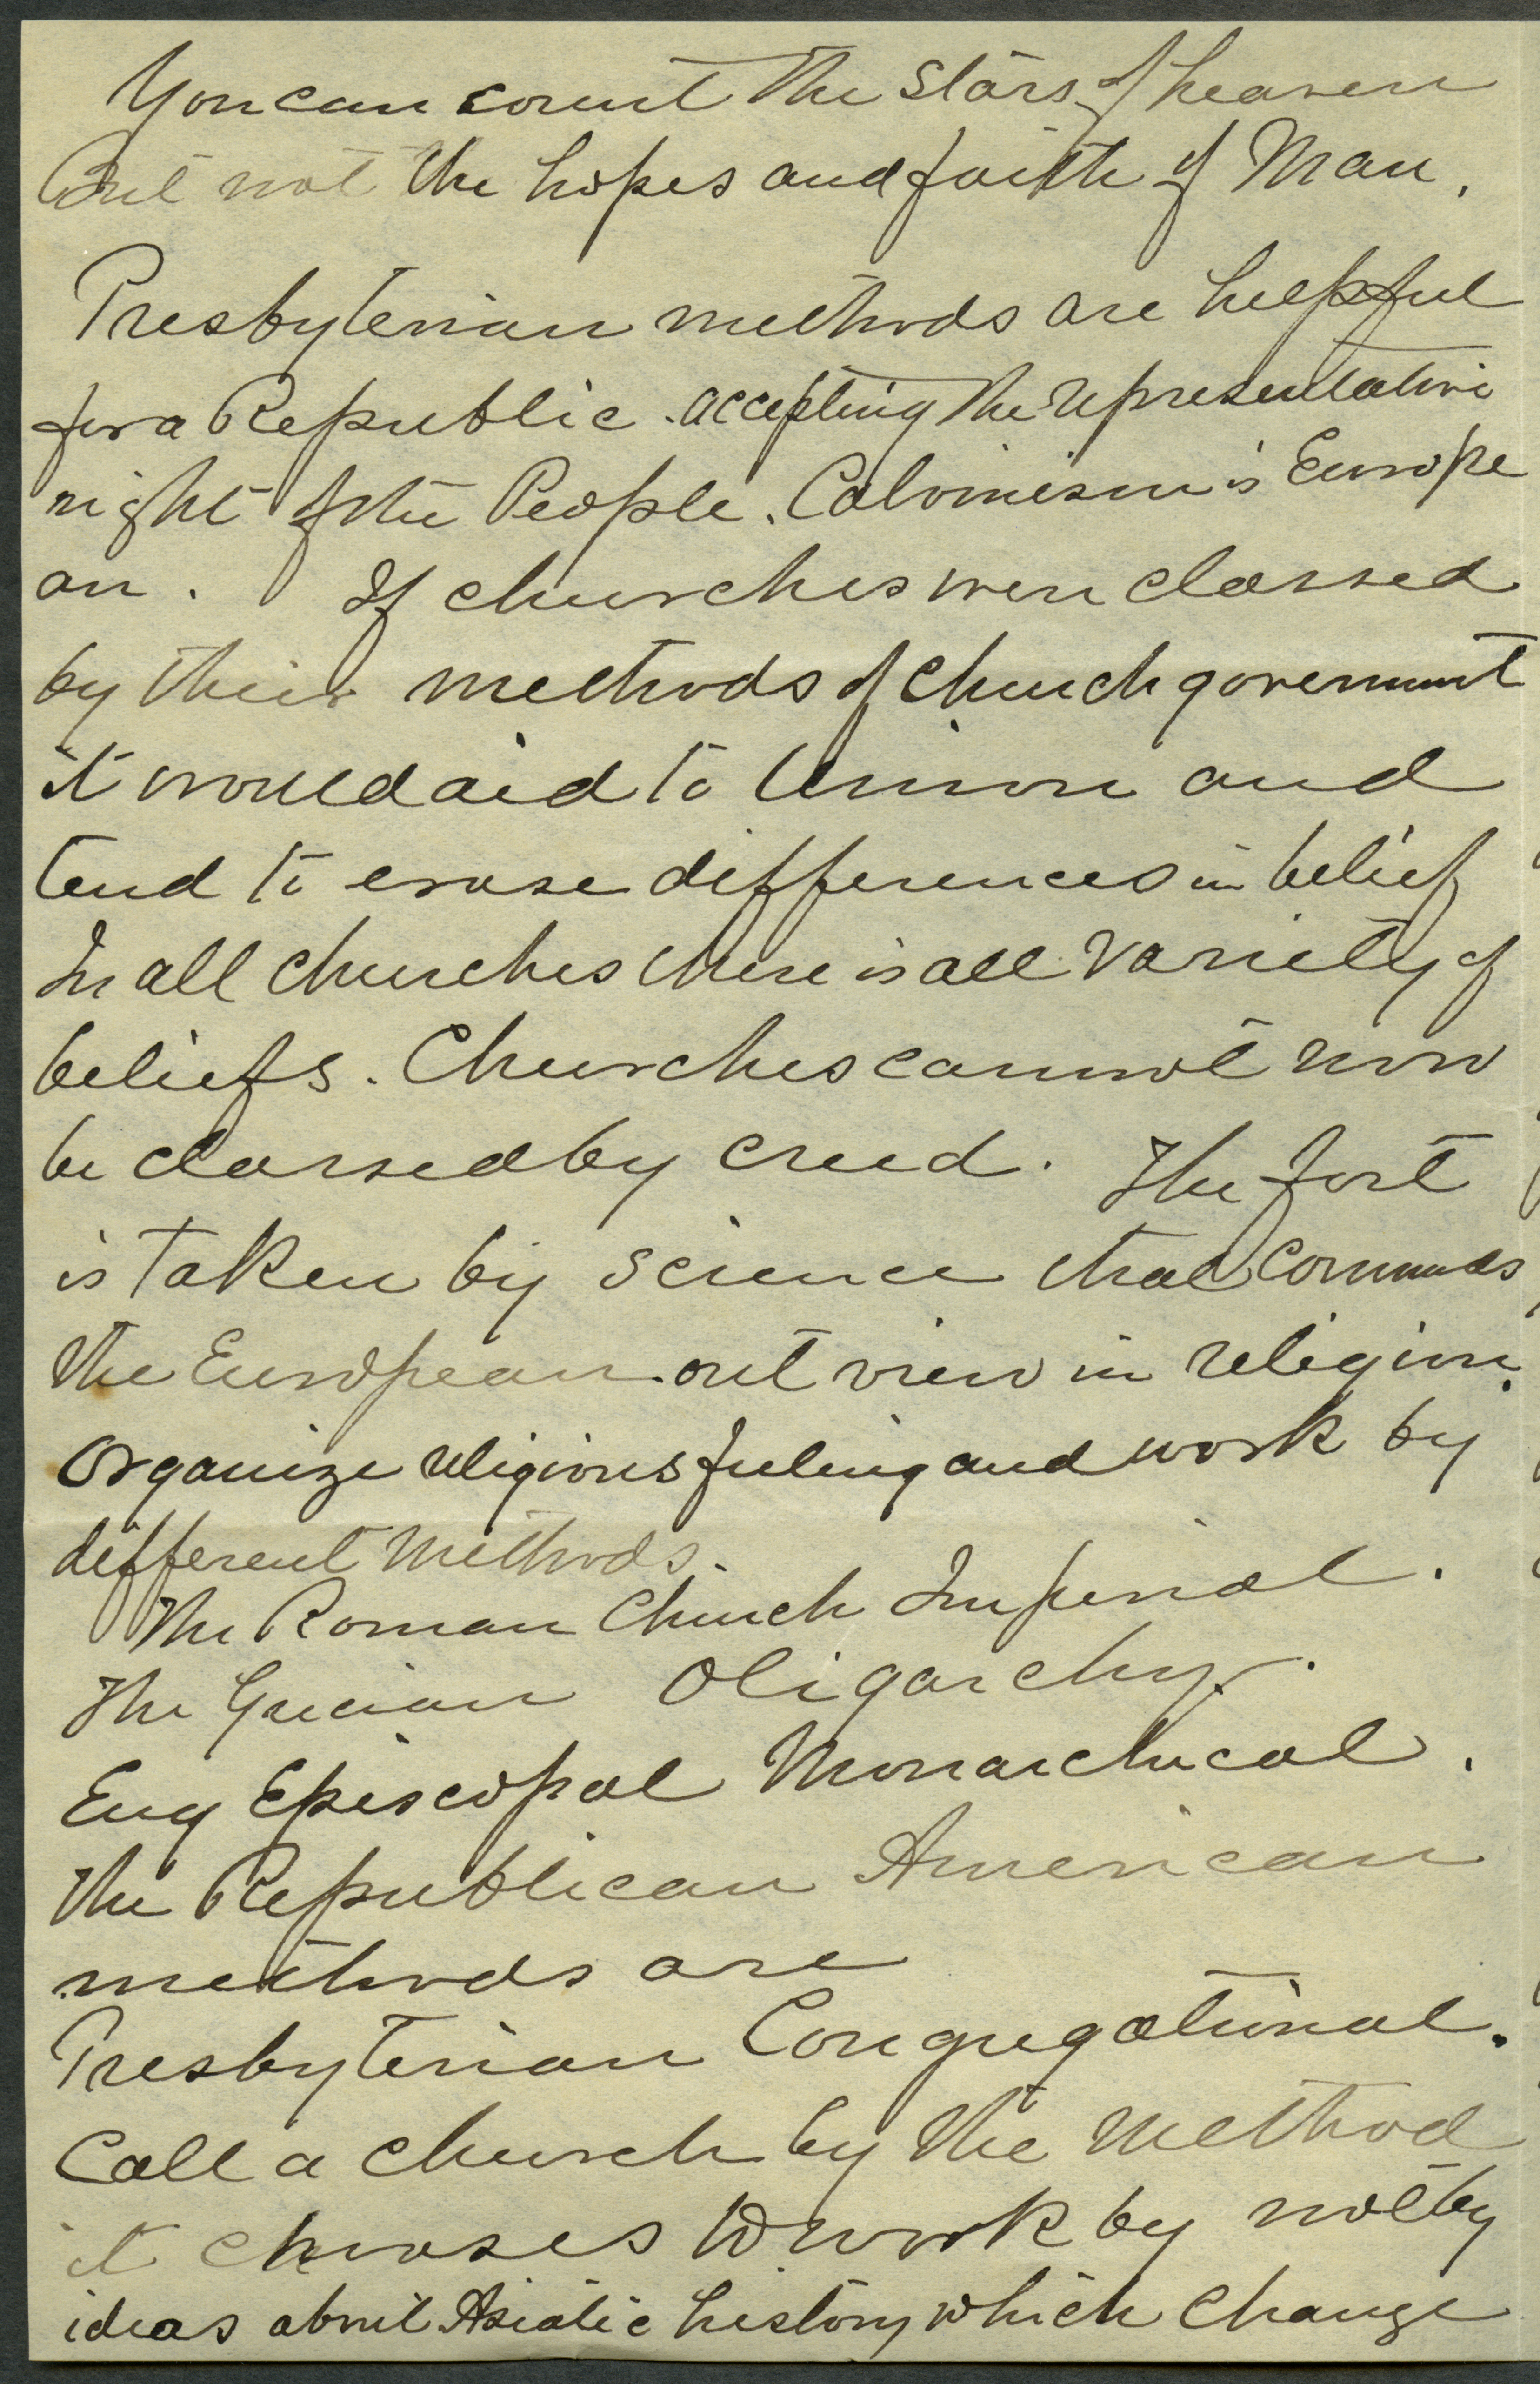 You can count the stars of heaven
But not the hopes and faith of Man.
Presbyterian methods are helpful
for a Republic. accepting the representative
right of the People. Calvinism is Europe
an. If churches were classed
by their methods of church government
it would aid to Union and
tend to erase differences in belief
In all churches there is all variety of
beliefs. Churches cannot now
be classed by creed. The fort
is taken by science that commands
the European out view in religion.
Organize religious feeling and work by
different methods.
The Roman Church Imperial.
The Grecian Oligarchy.
Eng Episcopal Monarchical.
The Republican American
methods are
Presbyterian Congregational.
Call a church by the method
it chooses to work by not by
ideas about Asiatic history which change